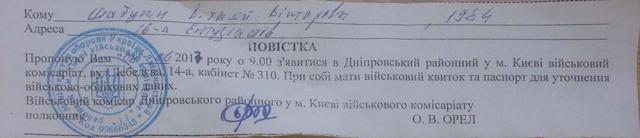 Кому Шабунін Віталій Вікторович, 1984
Адреса 16-а Ентузіастів
ПОВІСТКА
Пропоную Вам 2017 року о 9.00 з'явитися в Дніпровський районний у м. Києві військовий
комісаріат, вул. Лебедєва, 14-а, кабінет № 310. При собі мати військовий квиток та паспорт для уточнення
військово-облікових даних.
Військовий комісар Дніпровського районного у м. Києві військового комісаріату
полковник О. В. ОРЕЛ